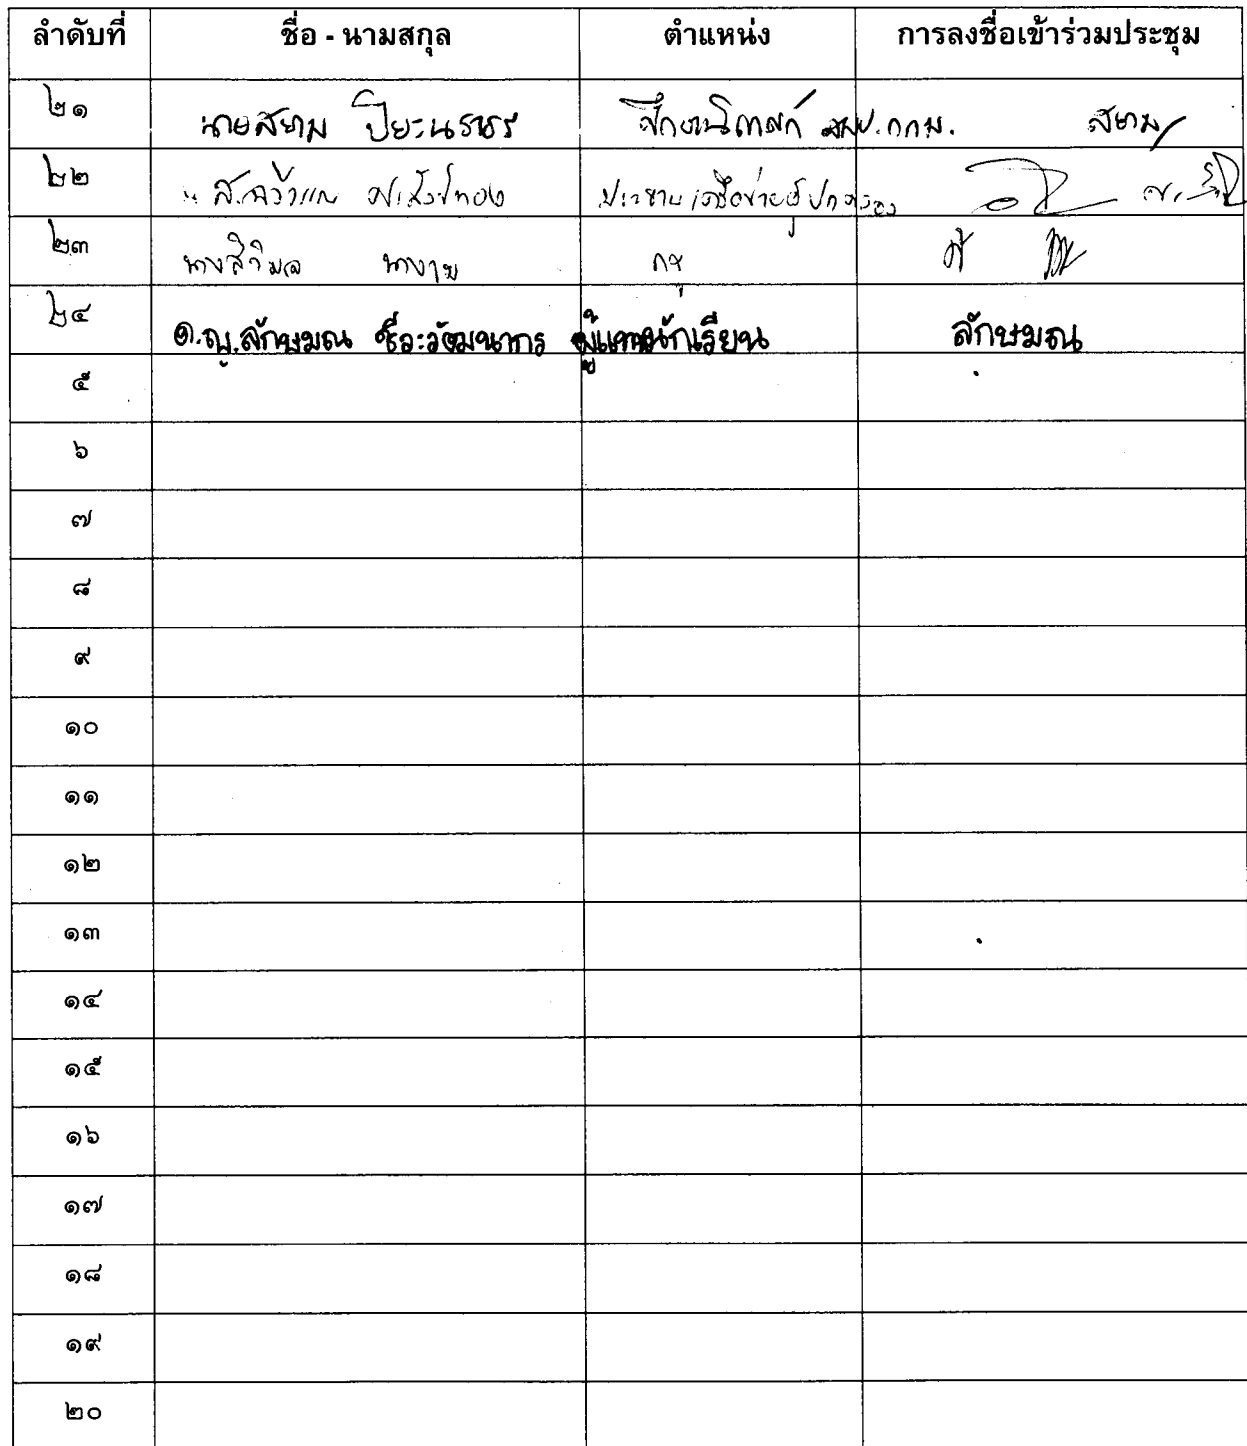 ลำดับที่ ชื่อ - นามสกุล ตำแหน่ง การลงชื่อเข้าร่วมประชุม
๒๑ นายสยาม ปิยะนราธร ศึกษานิเทศก์ สพป.กทม. สยาม
๒๒ ประธานเครือข่ายผู้ปกครอง
๒๓ นางสิริมล นางาม ครู
๒๔ ด.ญ.ลักษมณ ชีวะวัฒนากร ผู้แทนนักเรียน ลักษมณ
๕
๖
๗
๘
๙
๑๐
๑๑
๑๒
๑๓
๑๔
๑๕
๑๖
๑๗
๑๘
๑๙
๒๐